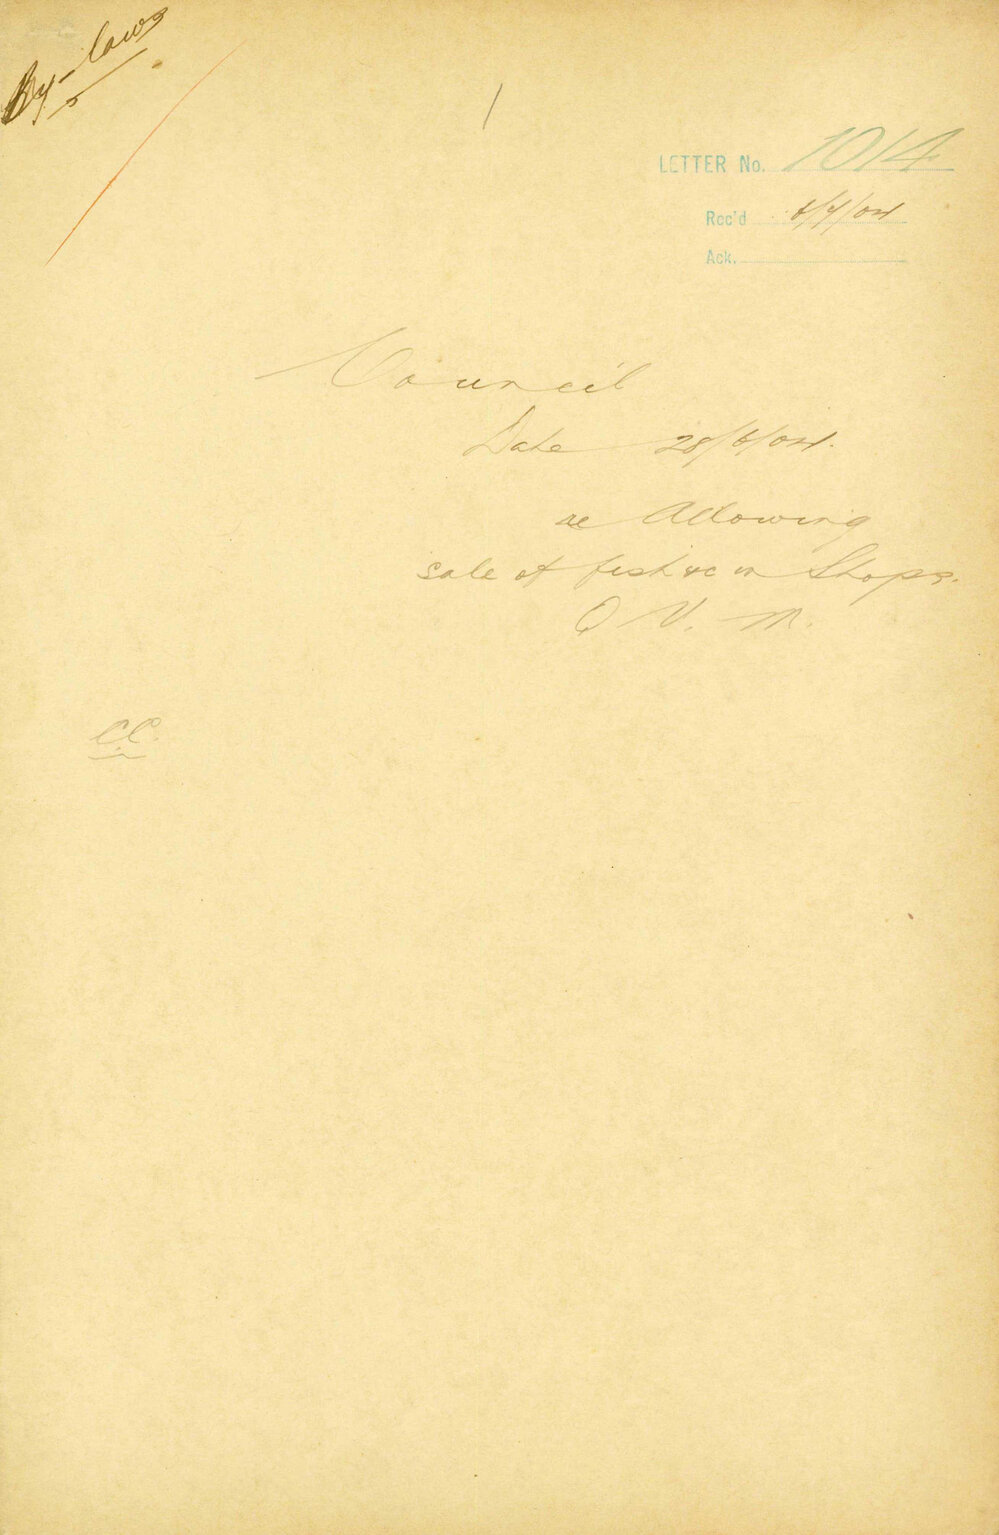 By-laws
LETTER No. 1014
Rec'd 6/7/04
Ack.
Council
Date 28/6/04.
re Allowing
sale of fish &c in Shops.
Q V. M.
C.C.